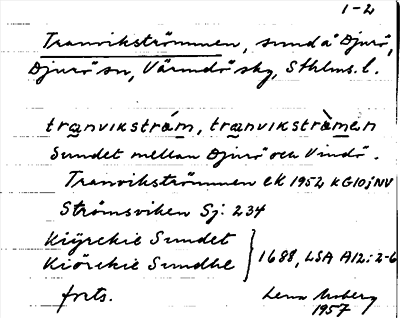 1-2
Tranvikströmmen, sund å Djurö,
Djurö sn, Värmdö skg, Sthlms l.
tranvikstråm, tranvikstråmen
Sundet mellan Djurö och Vindö.
Tranvikströmmen EK 1952 KG10jNV
Strömsviken Sj: 234
Kiÿrckie Sundet
Kiörckie Sundhe
1688, LSA A12:2-6
forts.
Lena Moberg
1957